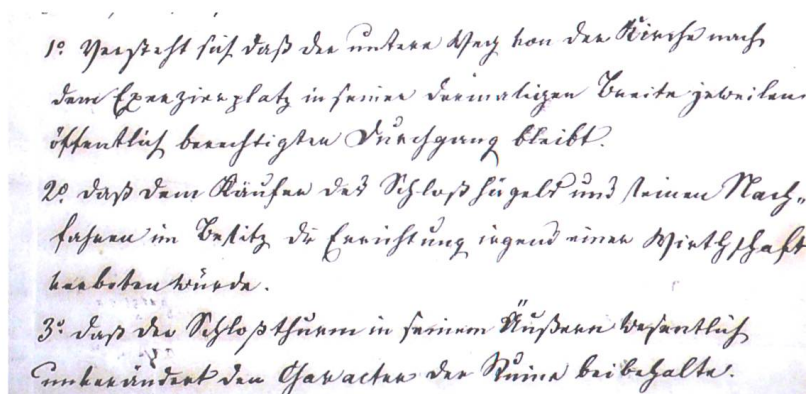 1º Versteht sich daß der untere Weg von der Kirche nach
dem Exerzierplatz in seiner dermaligen Breite jeweilen
öffentlich berechtigter Durchgang bleibt.
2º daß dem Käufer des Schloßhügels und seinen Nach-
fahren im Besitz die Errichtung irgend einer Wirthschaft
verboten würde.
3º daß der Schloßthurm in seinem Äußern wesentlich
unverändert den Caracter der Ruine beibehalte.